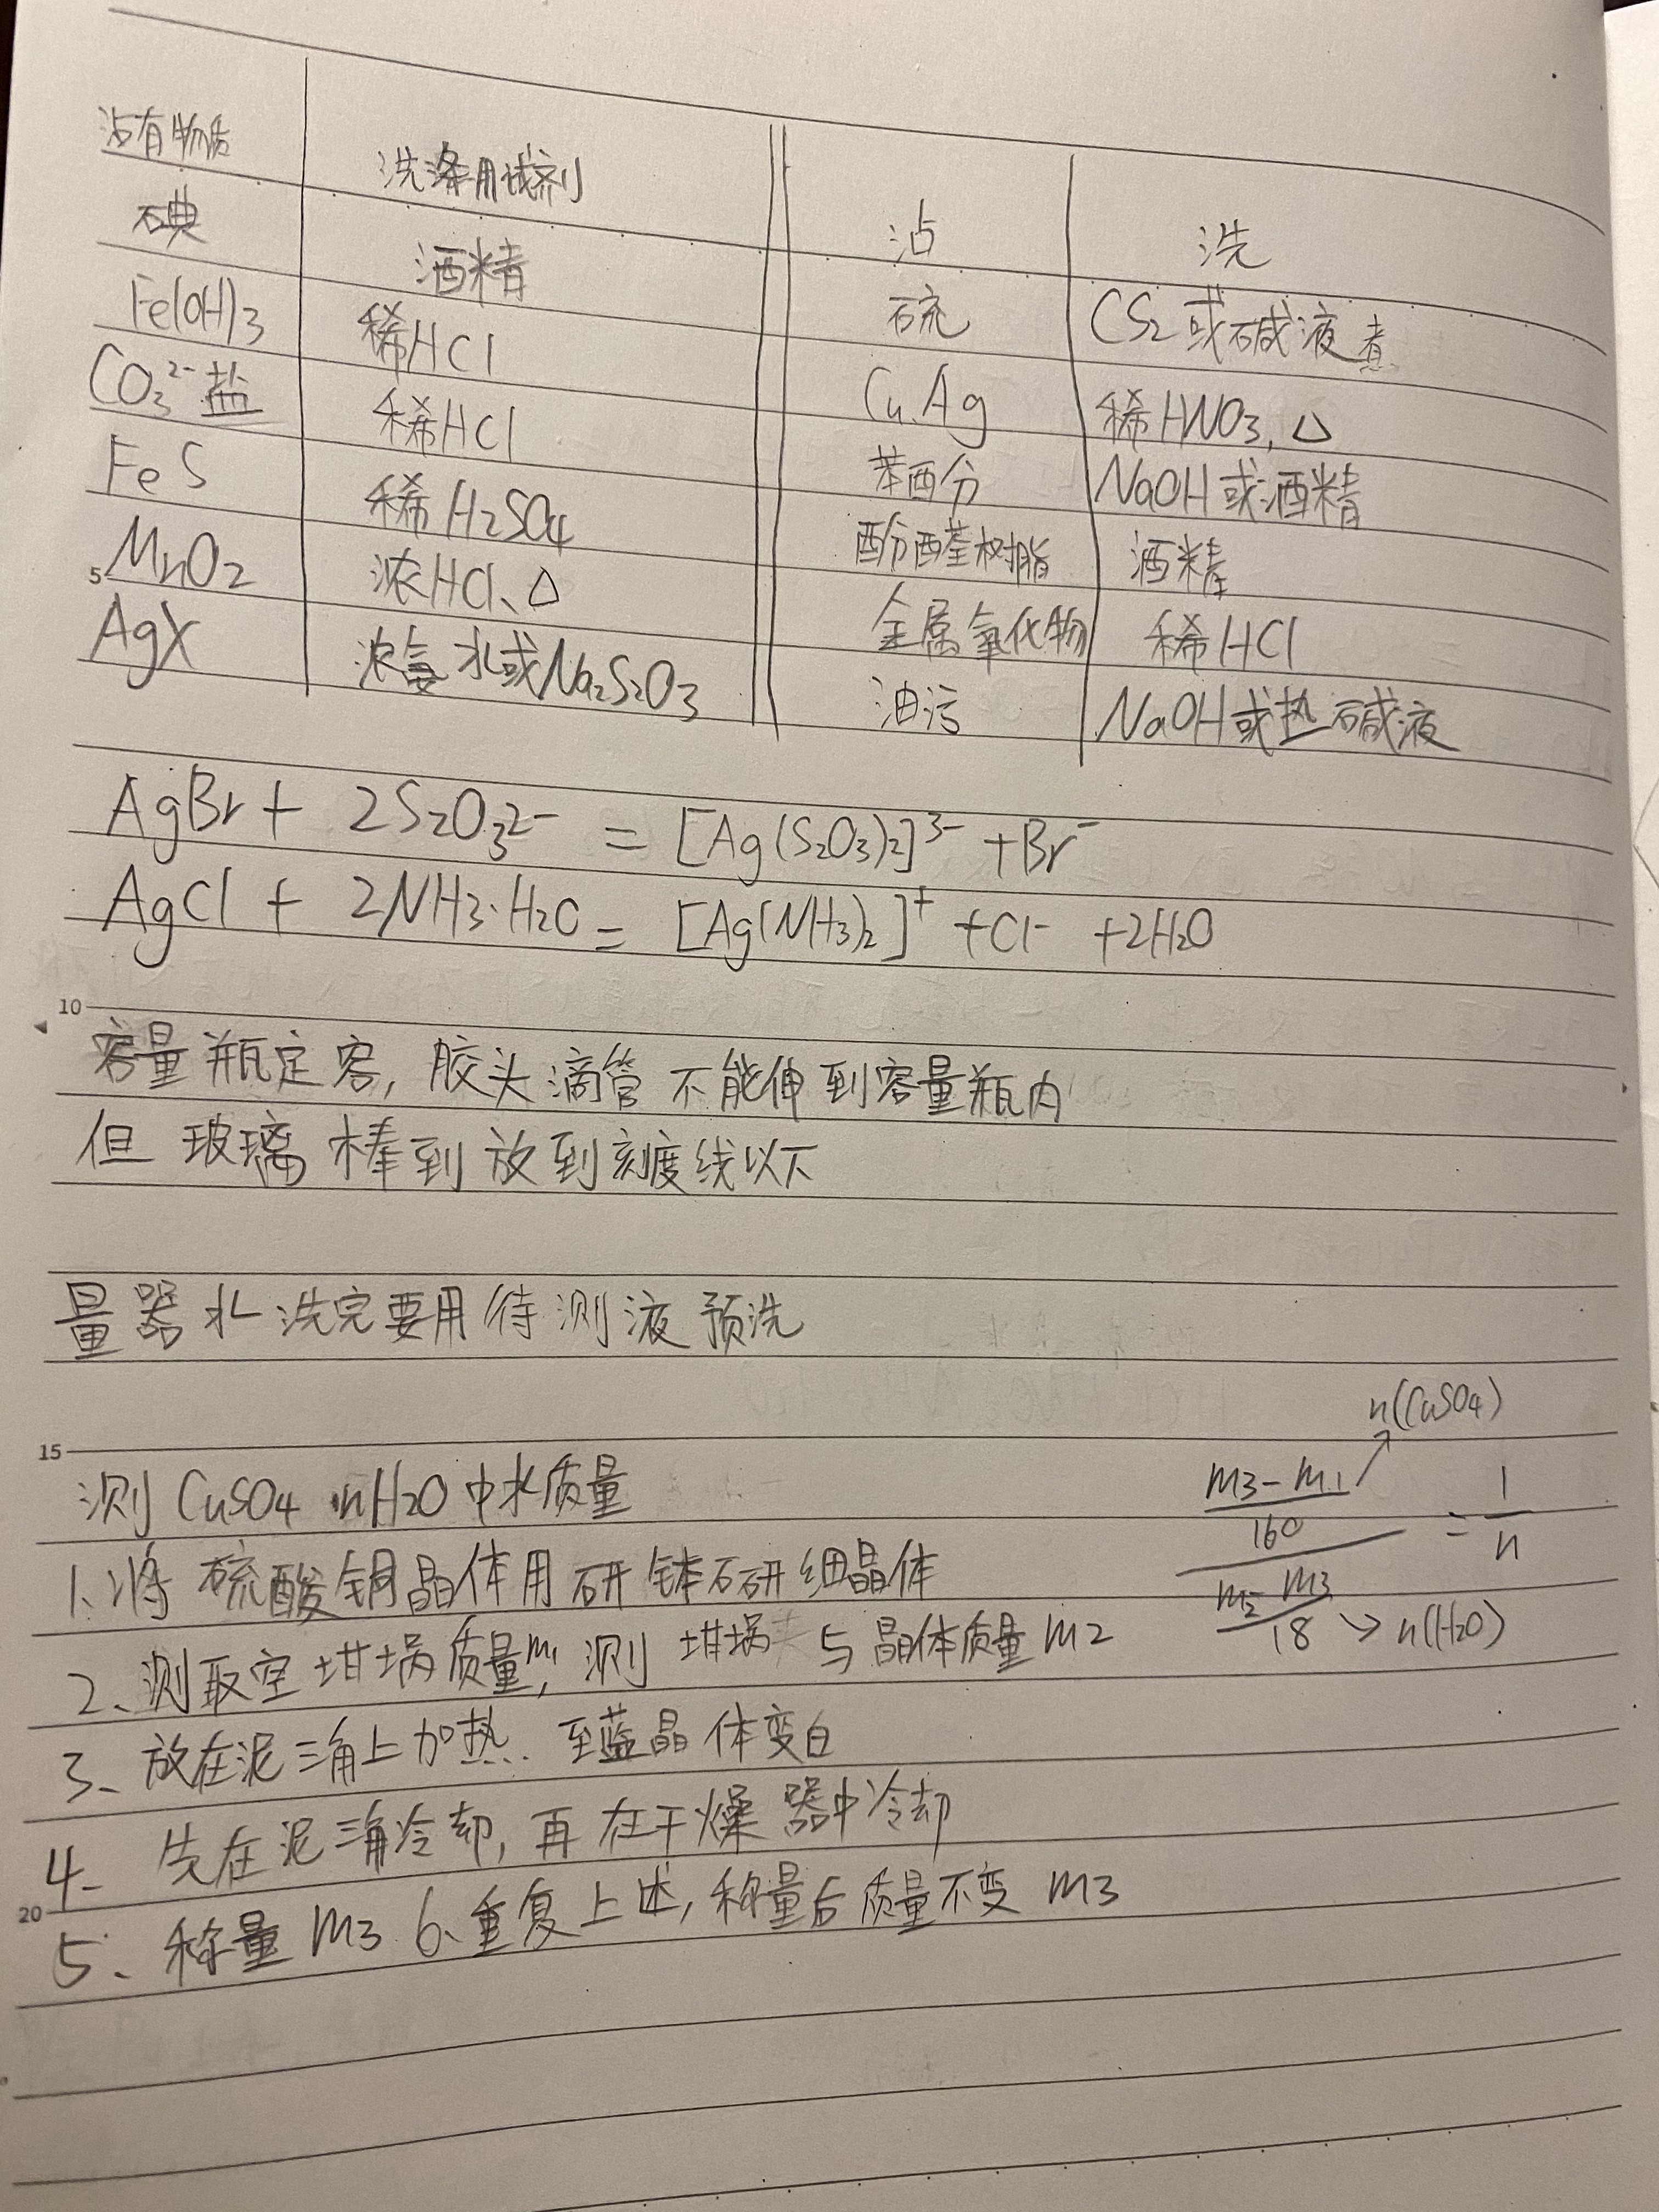 沾有物质 洗涤用试剂 沾 洗
碘 酒精 硫 CS2或碱液煮
Fe(OH)3 稀HCl Cu、Ag 稀HNO3,△
CO3²⁻盐 稀HCl 苯酚 NaOH或酒精
FeS 稀H2SO4 酚醛树脂 酒精
MnO2 浓HCl、△ 金属氧化物 稀HCl
AgX 浓氨水或Na2S2O3 油污 NaOH或热碱液
AgBr + 2S2O3²⁻ = [Ag(S2O3)2]³⁻ + Br⁻
AgCl + 2NH3·H2O = [Ag(NH3)2]⁺ + Cl⁻ + 2H2O
10
容量瓶定容,胶头滴管不能伸到容量瓶内
但玻璃棒到放到刻度线以下
量器水洗完要用待测液预洗
15
测CuSO4·nH2O中水质量
1、将硫酸铜晶体用研钵研细晶体
2、测取空坩埚质量m1 测坩埚与晶体质量m2
3、放在泥三角上加热. 至蓝晶体变白
4. 先在泥三角冷却,再在干燥器中冷却
20
5、称量m3 6、重复上述,称量后质量不变m3
n(CuSO4)
m3-m1
160
m2-m3
18
n(H2O)
= 1
n
5